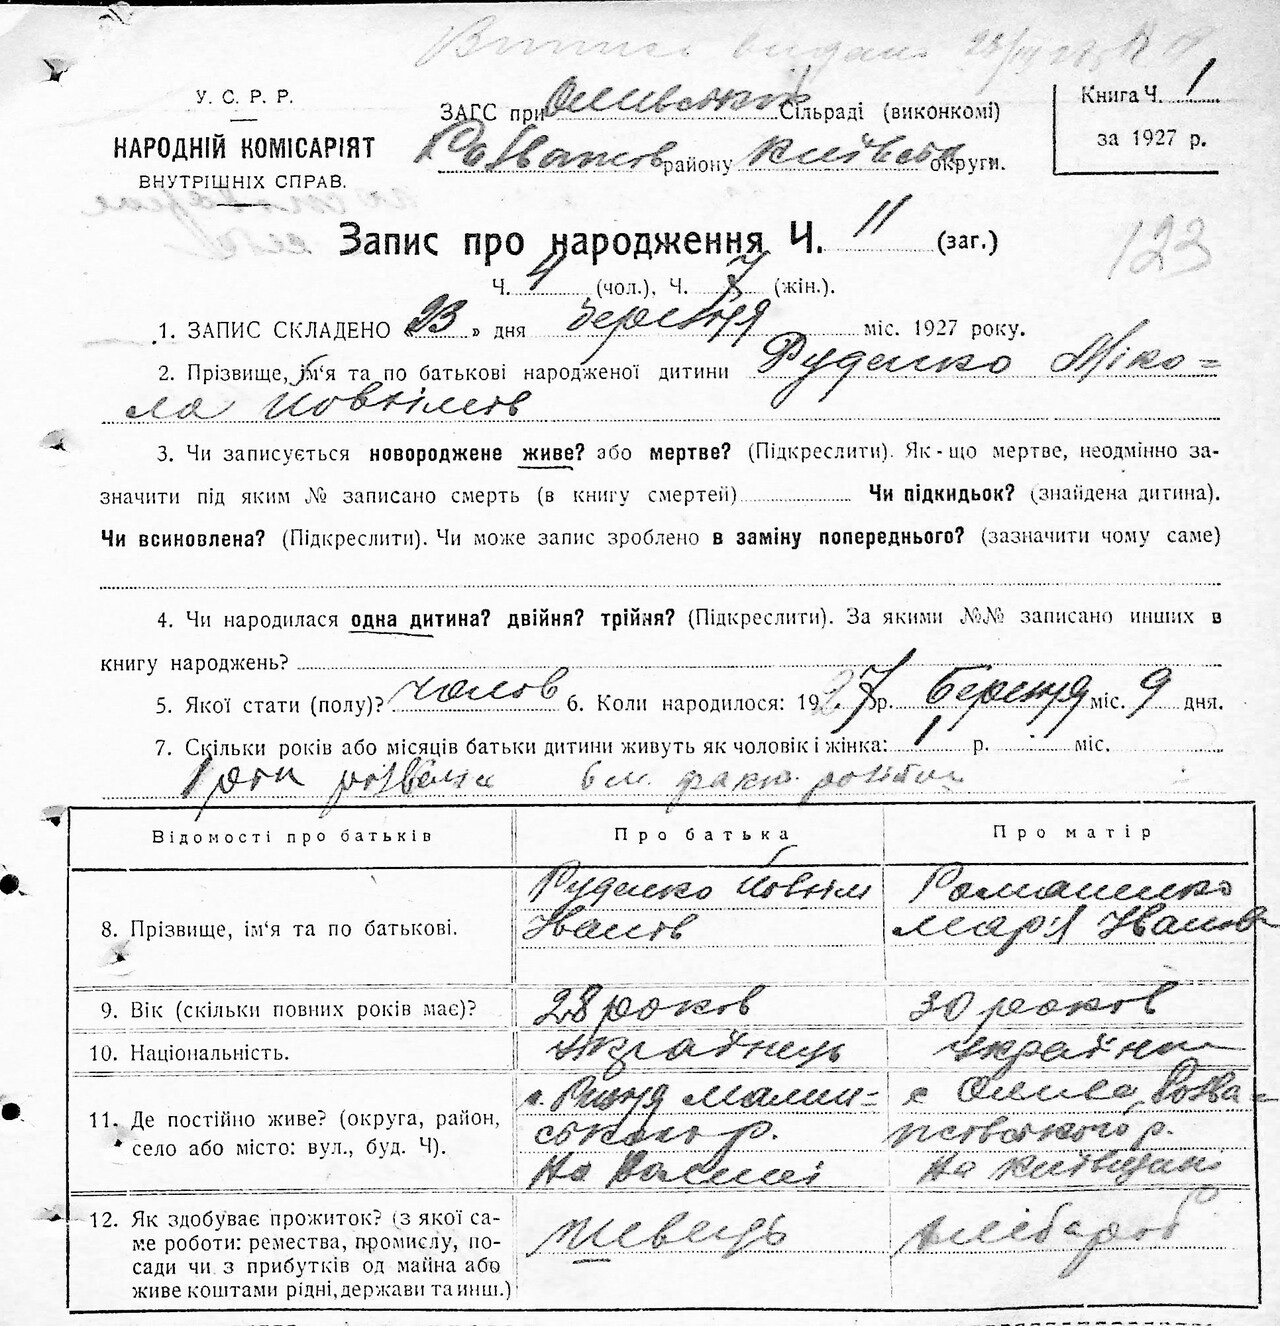 Випись видана 28/III 27 р.
У. С. Р. Р.
НАРОДНІЙ КОМІСАРІЯТ
ВНУТРІШНІХ СПРАВ.
ЗАГС при Оливській Сільраді (виконкомі)
Розважів району Київської округи.
Книга Ч. 1
за 1927 р.
123
Запис про народження Ч. 11 (заг.)
Ч. 4 (чол.), Ч. 7 (жін.).
1. ЗАПИС СКЛАДЕНО «23» дня березня міс. 1927 року.
2. Прізвище, ім‘я та по батькові народженої дитини Руденко Міко=
ла Йовхімов
3. Чи записується новороджене живе? або мертве? (Підкреслити). Як-що мертве, неодмінно за-
значити під яким № записано смерть (в книгу смертей) Чи підкидьок? (знайдена дитина).
Чи всиновлена? (Підкреслити). Чи може запис зроблено в заміну попереднього? (зазначити чому саме)
4. Чи народилася одна дитина? двійня? трійня? (Підкреслити). За якими №№ записано инших в
книгу народжень?
5. Якої стати (полу)? чолов 6. Коли народилося: 1927 р. березня міс. 9 дня.
7. Скільки років або місяців батьки дитини живуть як чоловік і жінка: 1 р. міс.
Відомості про батьків
Про батька
Про матір
8. Прізвище, ім‘я та по батькові.
Руденко Йовхім
Іванов
Романенко
Марія Іванов
9. Вік (скільки повних років має)?
28 років
30 років
10. Національність.
Українець
Українка
11. Де постійно живе? (округа, район,
село або місто: вул., буд. Ч).
Малин=
ського р.
На Волині
с Олива, Розва=
жівського р.
На Київщині
12. Як здобуває прожиток? (з якої са-
ме роботи: ремества, промислу, по-
сади чи з прибутків од майна або
живе коштами рідні, держави та инш.)
Швець
Хлібороб